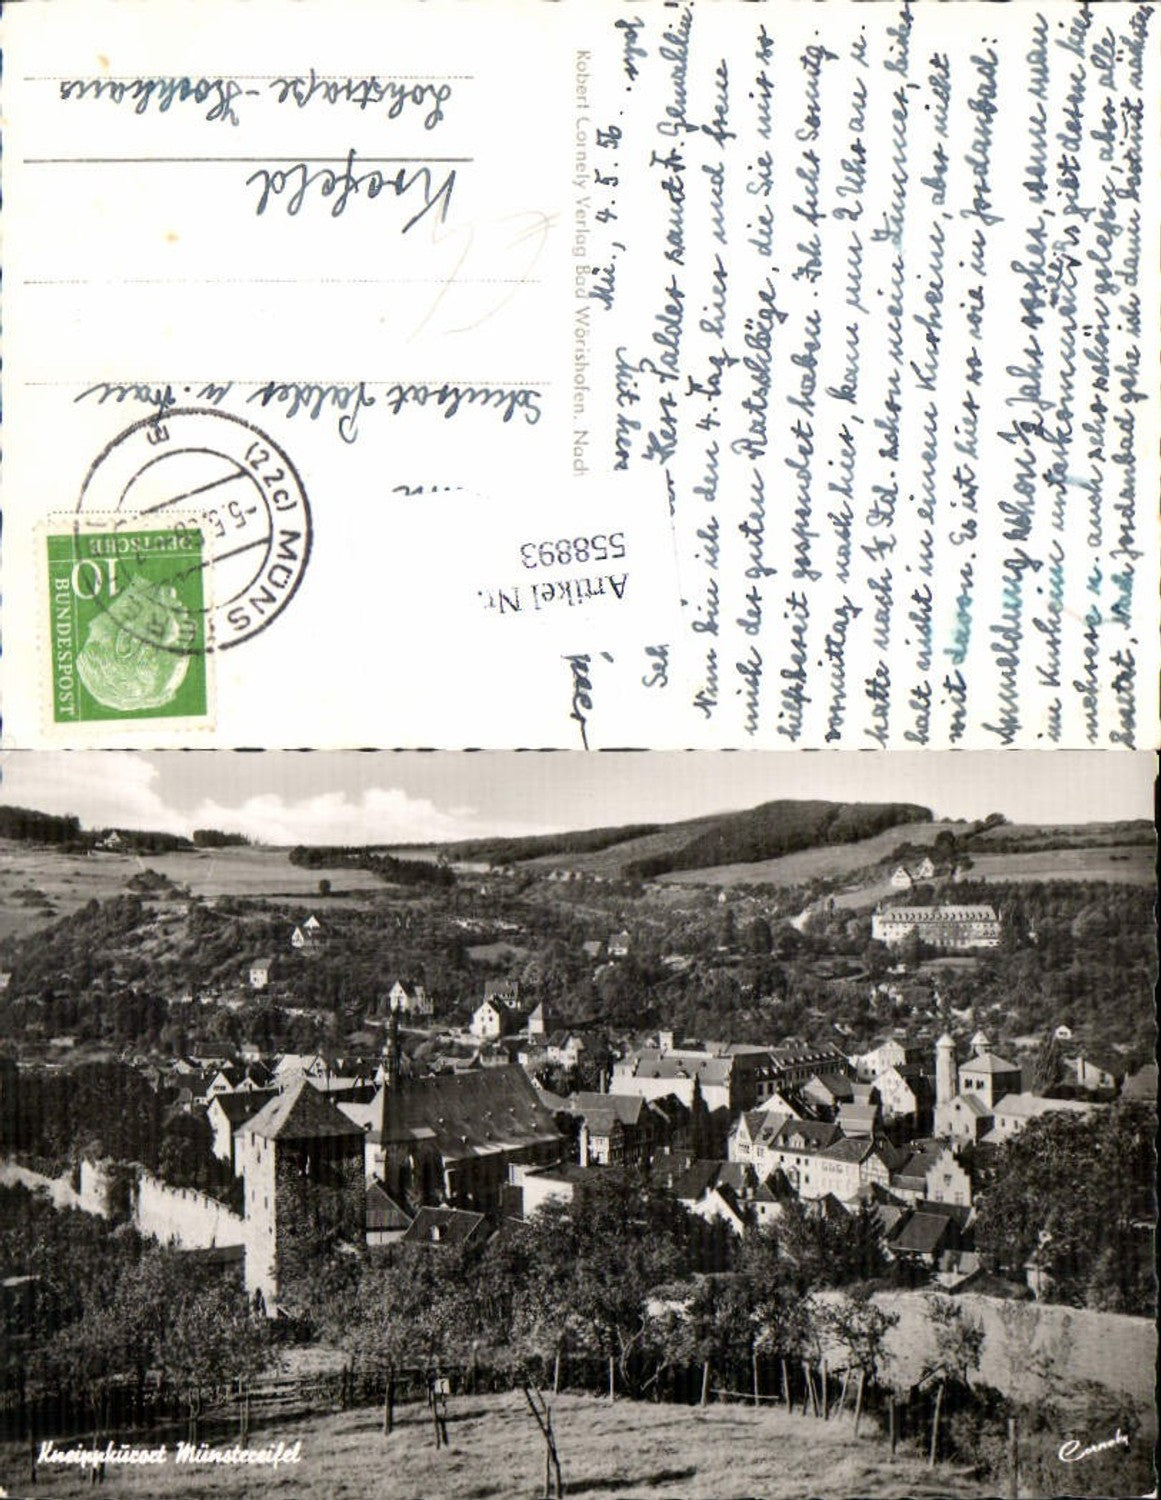 Mü., 4.5.56.
Herr Palder samt Fr. Gemahlin!
Nun bin ich den 4. Tag hier und freue
mich der guten Ratschläge, die Sie mir so
hilfsbereit gespendet haben. Ich fuhr Sonntg.
vormittag nach hier, kam um 2 Uhr an u.
hatte nach ½ Std. schon mein Zimmer, leider
halt nicht in einem Kurheim, aber nicht
weit davon. Es ist hier so wie in Jordanbad:
Anmeldung schon ½ Jahr vorher, wenn man
im Kurheim unterkommen will. Es gibt deren hier
mehrere u. auch sehr schön gelegen, aber alle
besetzt, nach Jordanbad gehe ich dann bestimt nächstes
Robert Cornely Verlag Bad Wörishofen. Nach
Schulrat Palder u. Frau
Krefeld
Lohstraße-Hochhaus
(22c) MÜNS
-5.5.56
DEUTSCHE
10
BUNDESPOST
Artikel Nr.
558893
Kneippkurort Münstereifel
Cornely